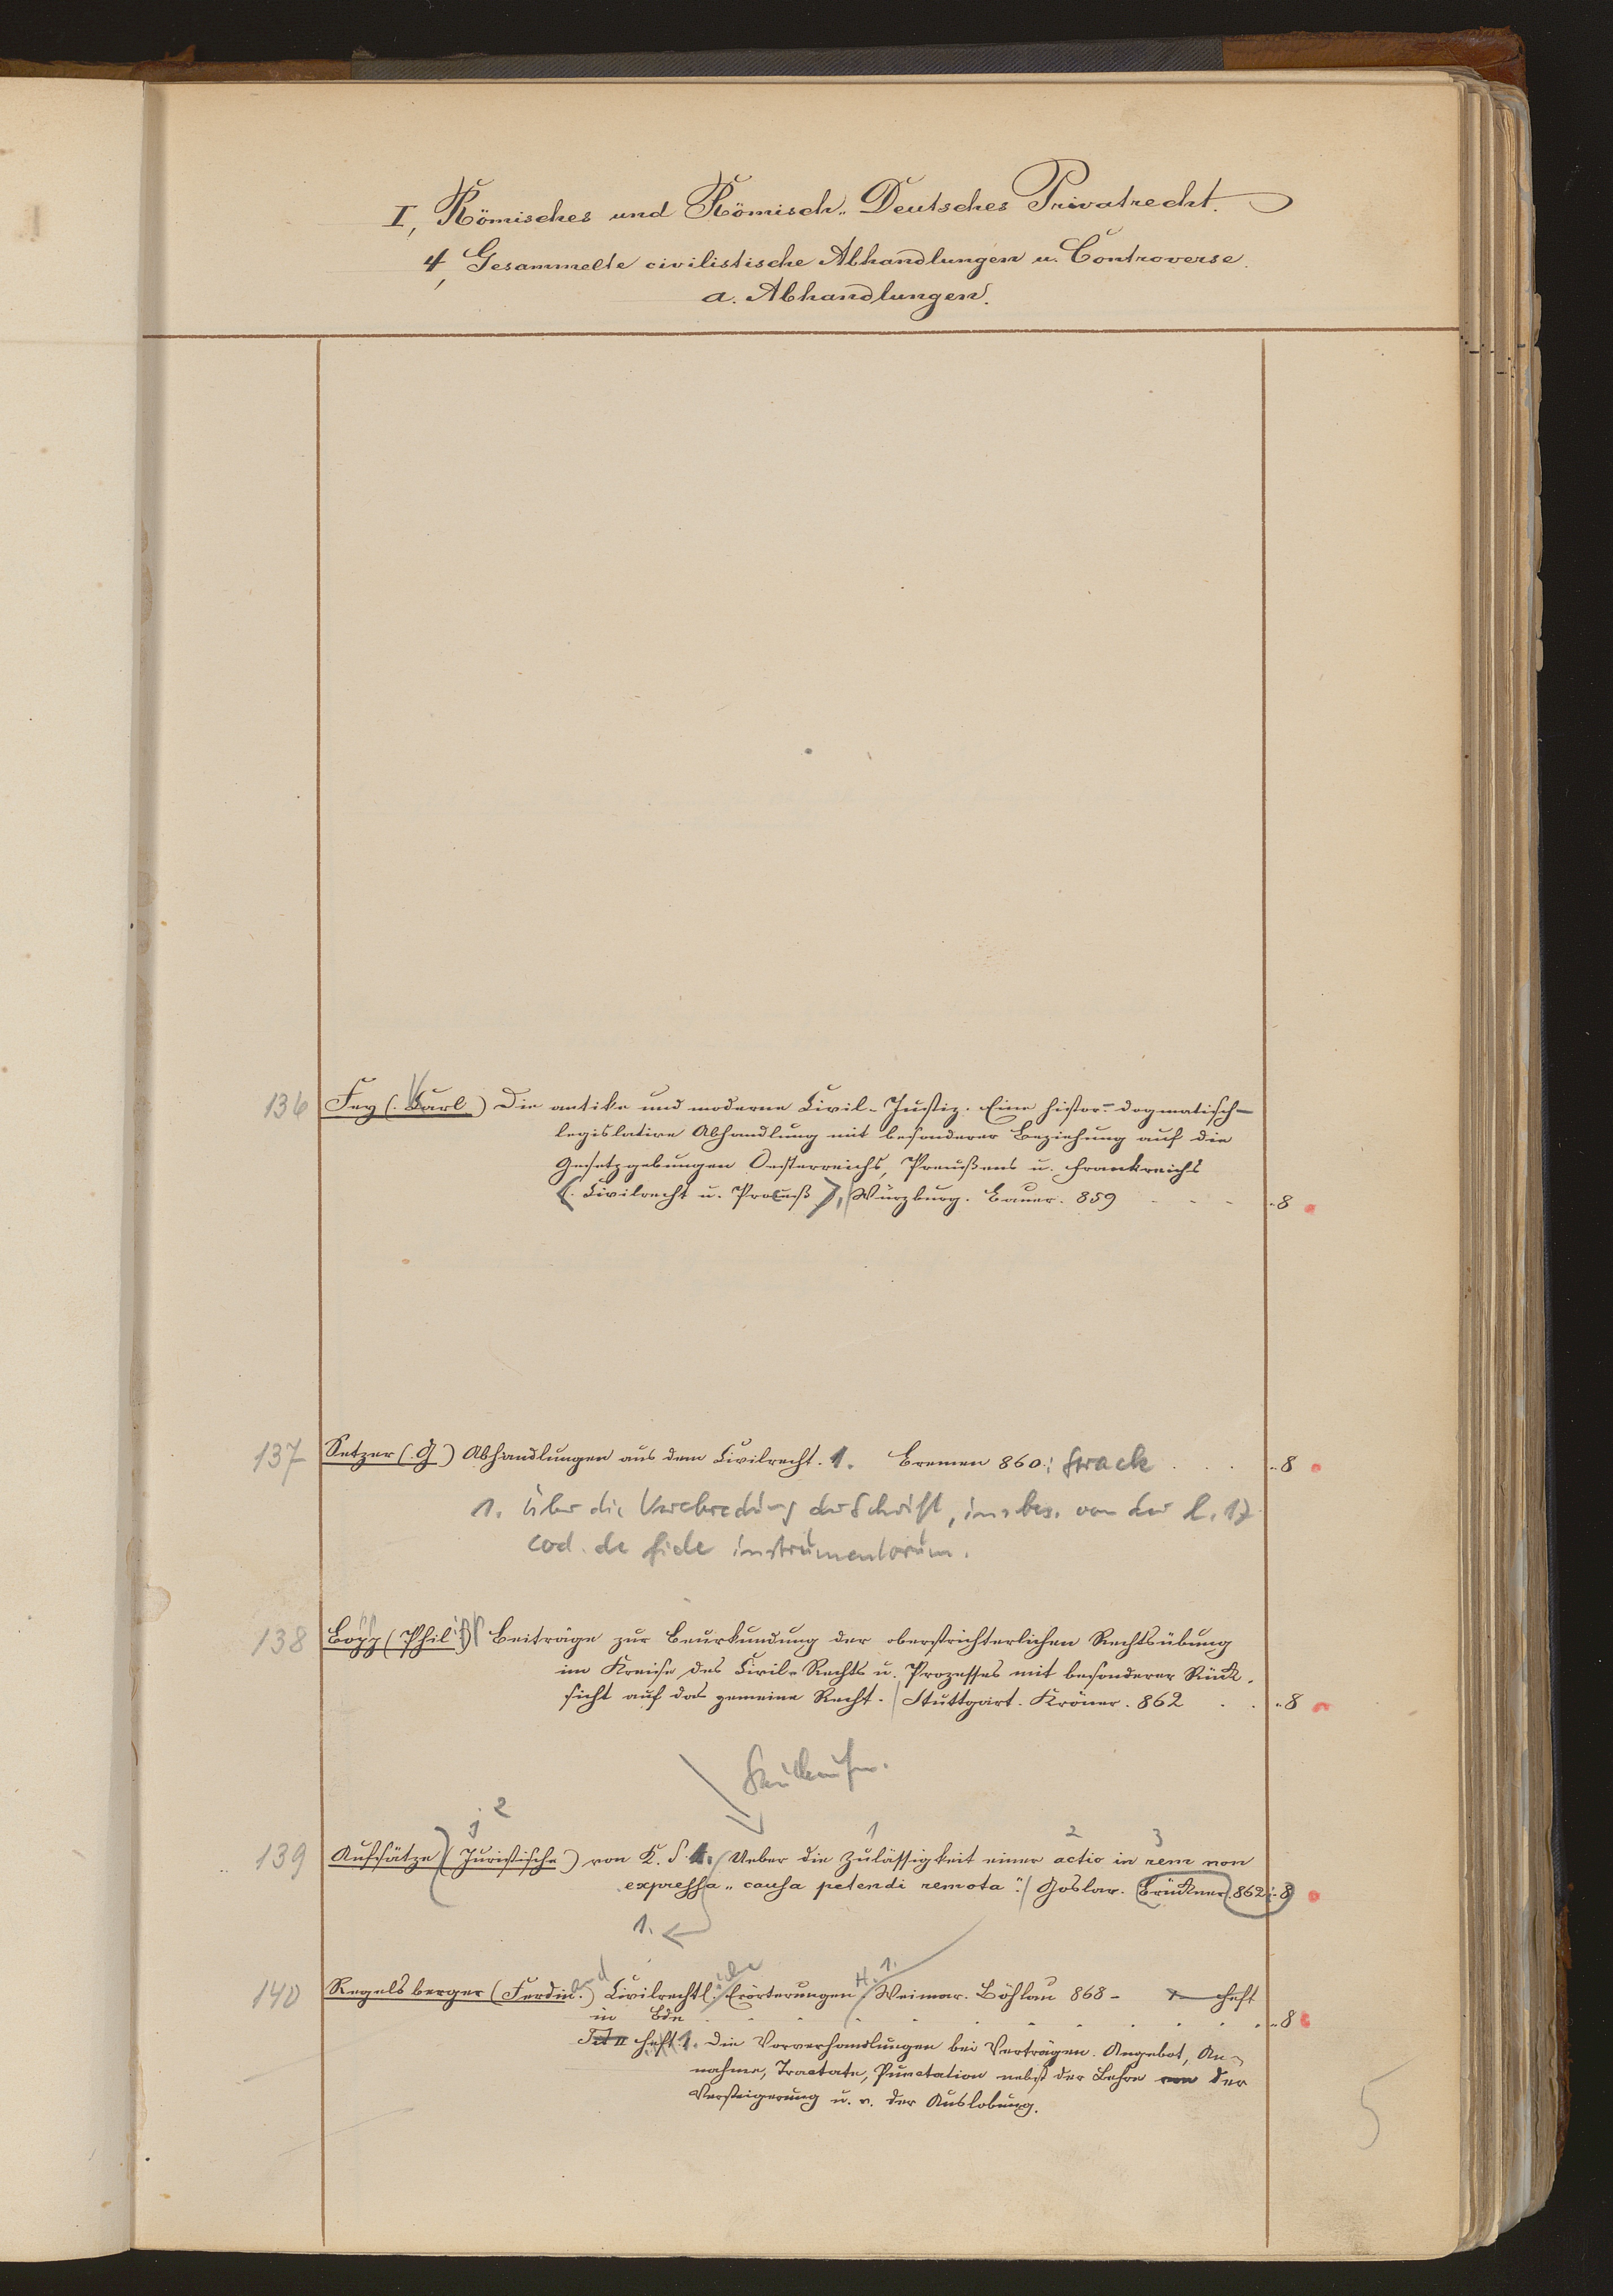 I, Römisches und Römisch-Deutsches Privatrecht.
4, Gesammelte civilistische Abhandlungen u. Controverse.
a. Abhandlungen.
136 Fey (. Carl) Die antike und moderne Civil-Justiz. Eine histor.-dogmatisch-
legislative Abhandlung mit besonderer Beziehung auf die
Gesetzgebungen Oesterreichs, Preußens u. Frankreichs
(. Civilrecht u. Proceß), Würzburg. Bauer. 859 - - - -8
137 Setzer (. G) Abhandlungen aus dem Civilrecht. 1. Bremen 860.; Strack . . . -8
1. Über die der Schrift, insbes. von der l. 17
cod. de fide instrumentorum.
138 Bopp (Phil.) Beiträge zur Beurkundung der oberstrichterlichen Rechtsübung
im Kreise des Civil-Rechts u. Prozesses mit besonderer Rück-
sicht auf das gemeine Recht. Stuttgart. Kröner. 862 . . -8
j 2 1 2 3
139 Aufsätze (Juristische) von K. S. 1. Ueber die Zulässigkeit einer actio in rem non
expressa "causa petendi remota". Goslar. Brückner. 862. -8
1.
140 Regelsberger (Ferdin.and) Civilrechtl.iche Erörterungen H. 1. Weimar. Böhlau 868 - Heft
in Bdn . . . . . . . . . . -8
Heft 1. Die Vorverhandlungen bei Verträgen. Angebot, An-
nahme, Tractate, Punctation nebst der Lehre von der
Versteigerung u. v. der Auslobung.
5